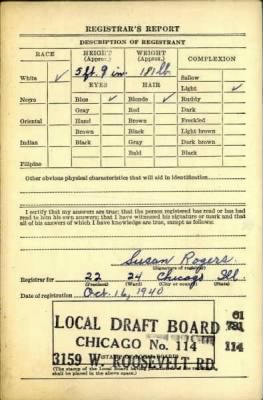 REGISTRAR'S REPORT
DESCRIPTION OF REGISTRANT
RACE HEIGHT (Approx.) WEIGHT (Approx.) COMPLEXION
5 ft. 9 in. 181 lb. Sallow
White ✓ EYES HAIR Light ✓
Negro Blue ✓ Blonde ✓ Ruddy
Gray Red Dark
Oriental Hazel Brown Freckled
Brown Black Light brown
Indian Black Gray Dark brown
Bald Black
Filipino
Other obvious physical characteristics that will aid in identification
I certify that my answers are true; that the person registered has read or has had
read to him his own answers; that I have witnessed his signature or mark and that
all of his answers of which I have knowledge are true, except as follows:
Susan Rogers
(Signature of registrar)
Registrar for 22 24 Chicago Ill.
(Precinct) (Ward) (City or county) (State)
Date of registration Oct. 16, 1940
LOCAL DRAFT BOARD 61
CHICAGO No. 114 114
3159 W. ROOSEVELT RD.
(The stamp of the Local Board
shall be placed in the above space.)